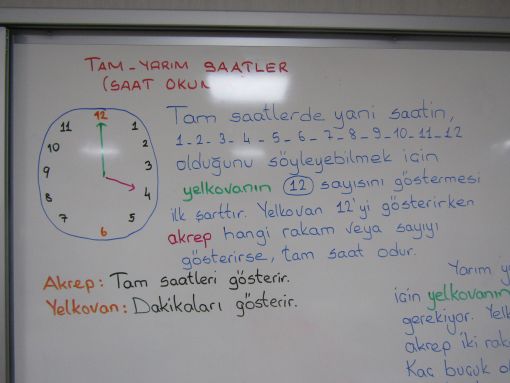 TAM-YARIM SAATLER
(SAAT OKUN
12
11 1
10 2
9 3
8 4
7 5
6
Tam saatlerde yani saatin,
1-2-3-4-5-6-7-8-9-10-11-12
olduğunu söyleyebilmek için
yelkovanın 12 sayısını göstermesi
ilk şarttır. Yelkovan 12'yi gösterirken
akrep hangi rakam veya sayıyı
gösterirse, tam saat odur.
Akrep: Tam saatleri gösterir.
Yelkovan: Dakikaları gösterir.
Yarım
için yelkovanın
gerekiyor. Yel
akrep iki rak
Kaç buçuk o